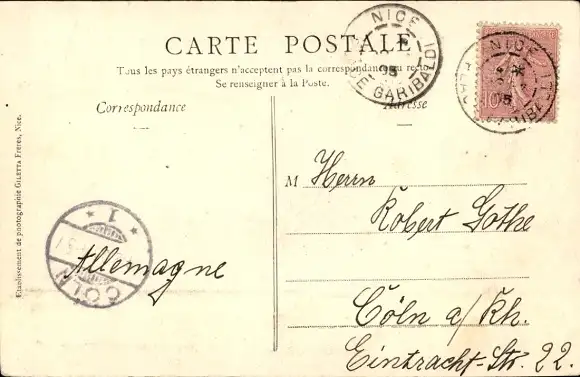 CARTE POSTALE
Tous les pays étrangers n'acceptent pas la correspondance au recto
Se renseigner à la Poste.
Correspondance
Adresse
NICE
PLACE GARIBALDI
05
NICE
10
M Herrn
Robert Gothe
Allemagne
Cöln a/Rh.
Eintracht-Str. 22.
CÖLN
1
Etablissement de photographie GILETTA Frères, Nice.